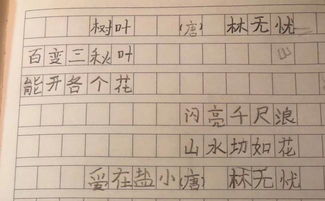 树叶 (唐) 林无忧
百变三秋叶
能开各个花
闪亮千尺浪
山水切如花
爱在盐小(唐) 林无忧